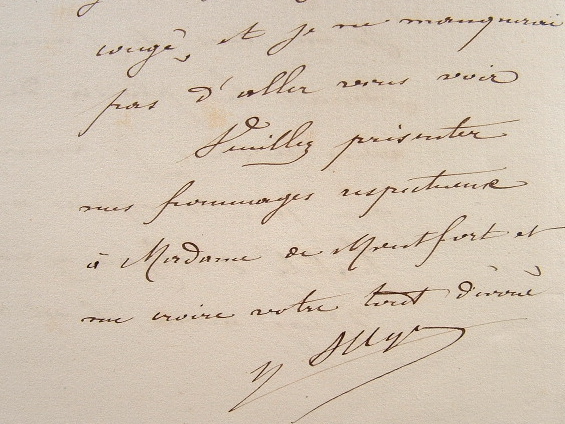 congé, et je ne manquerai
pas d'aller vous voir
Veuillez présenter
mes hommages respectueux
à Madame de Montfort et
me croire votre tout dévoué